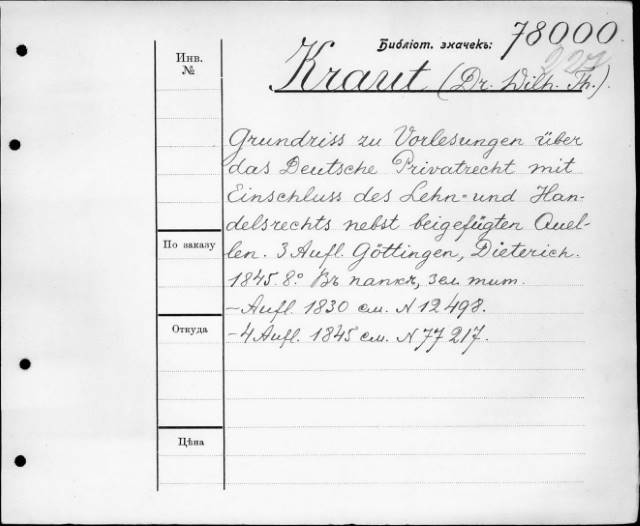 Библіот. значекъ: 78000.
227
Инв.
№
Kraut (Dr. Wilh. Th.).
Grundriss zu Vorlesungen über
das Deutsche Privatrecht mit
Einschluss des Lehn- und Han-
delsrechts nebst beigefügten Quel-
По заказу
len. 3 Aufl. Göttingen, Dieterich.
1845. 8º Въ папкѣ,
- Aufl. 1830 см. N 12498.
Откуда
- 4 Aufl. 1845 см. N 77217.
Цѣна